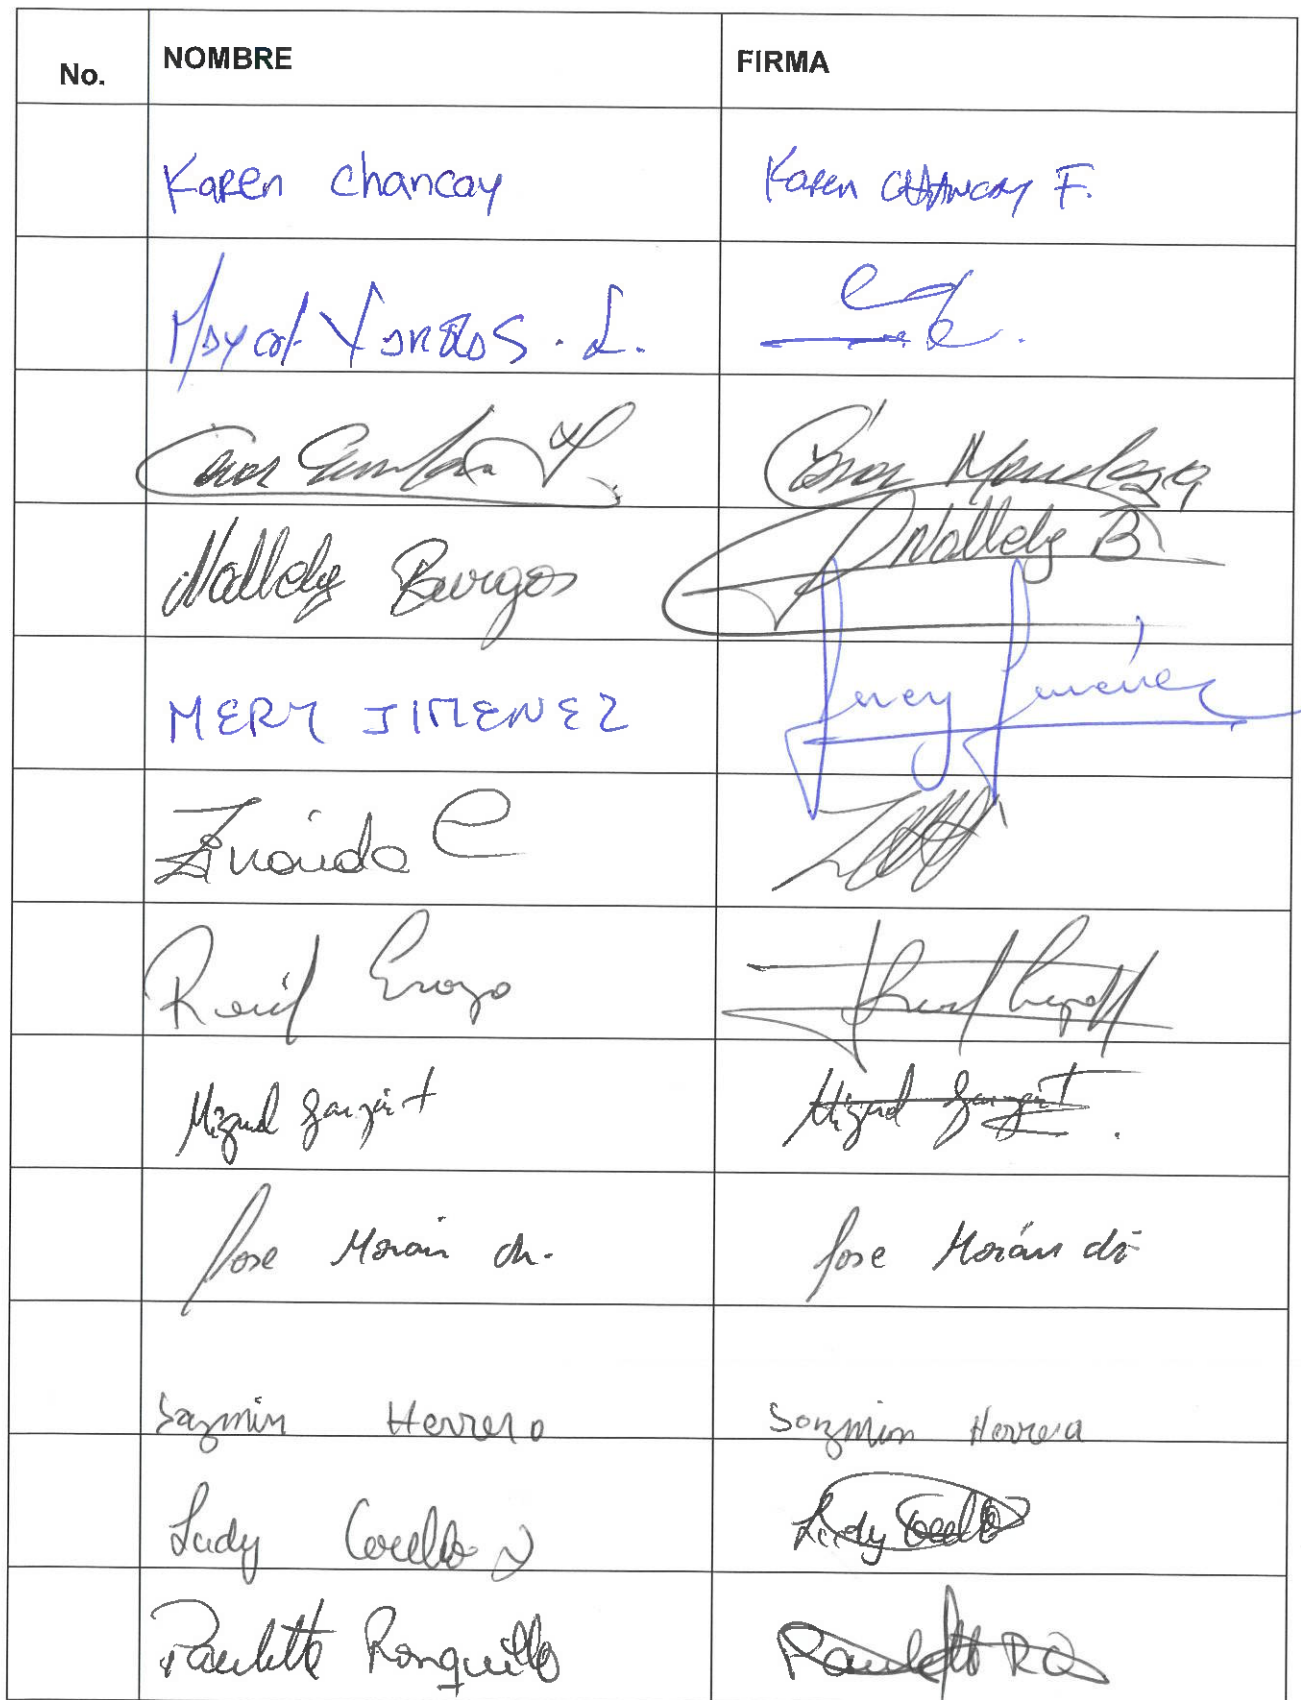 No. NOMBRE FIRMA
Karen Chancay Karen CHANCAY F.
L.
Nallely Burgos Nallely B
MERY JIMENEZ Mery Jiménez
Zinaida C
Raúl Erazo
Miguel Miguel
Jose Morán ch. Jose Morán ch
Jazmin Herrera Jazmin Herrera
Lady Coello Lady Coello
Paulette Ronquillo Paulette RQ